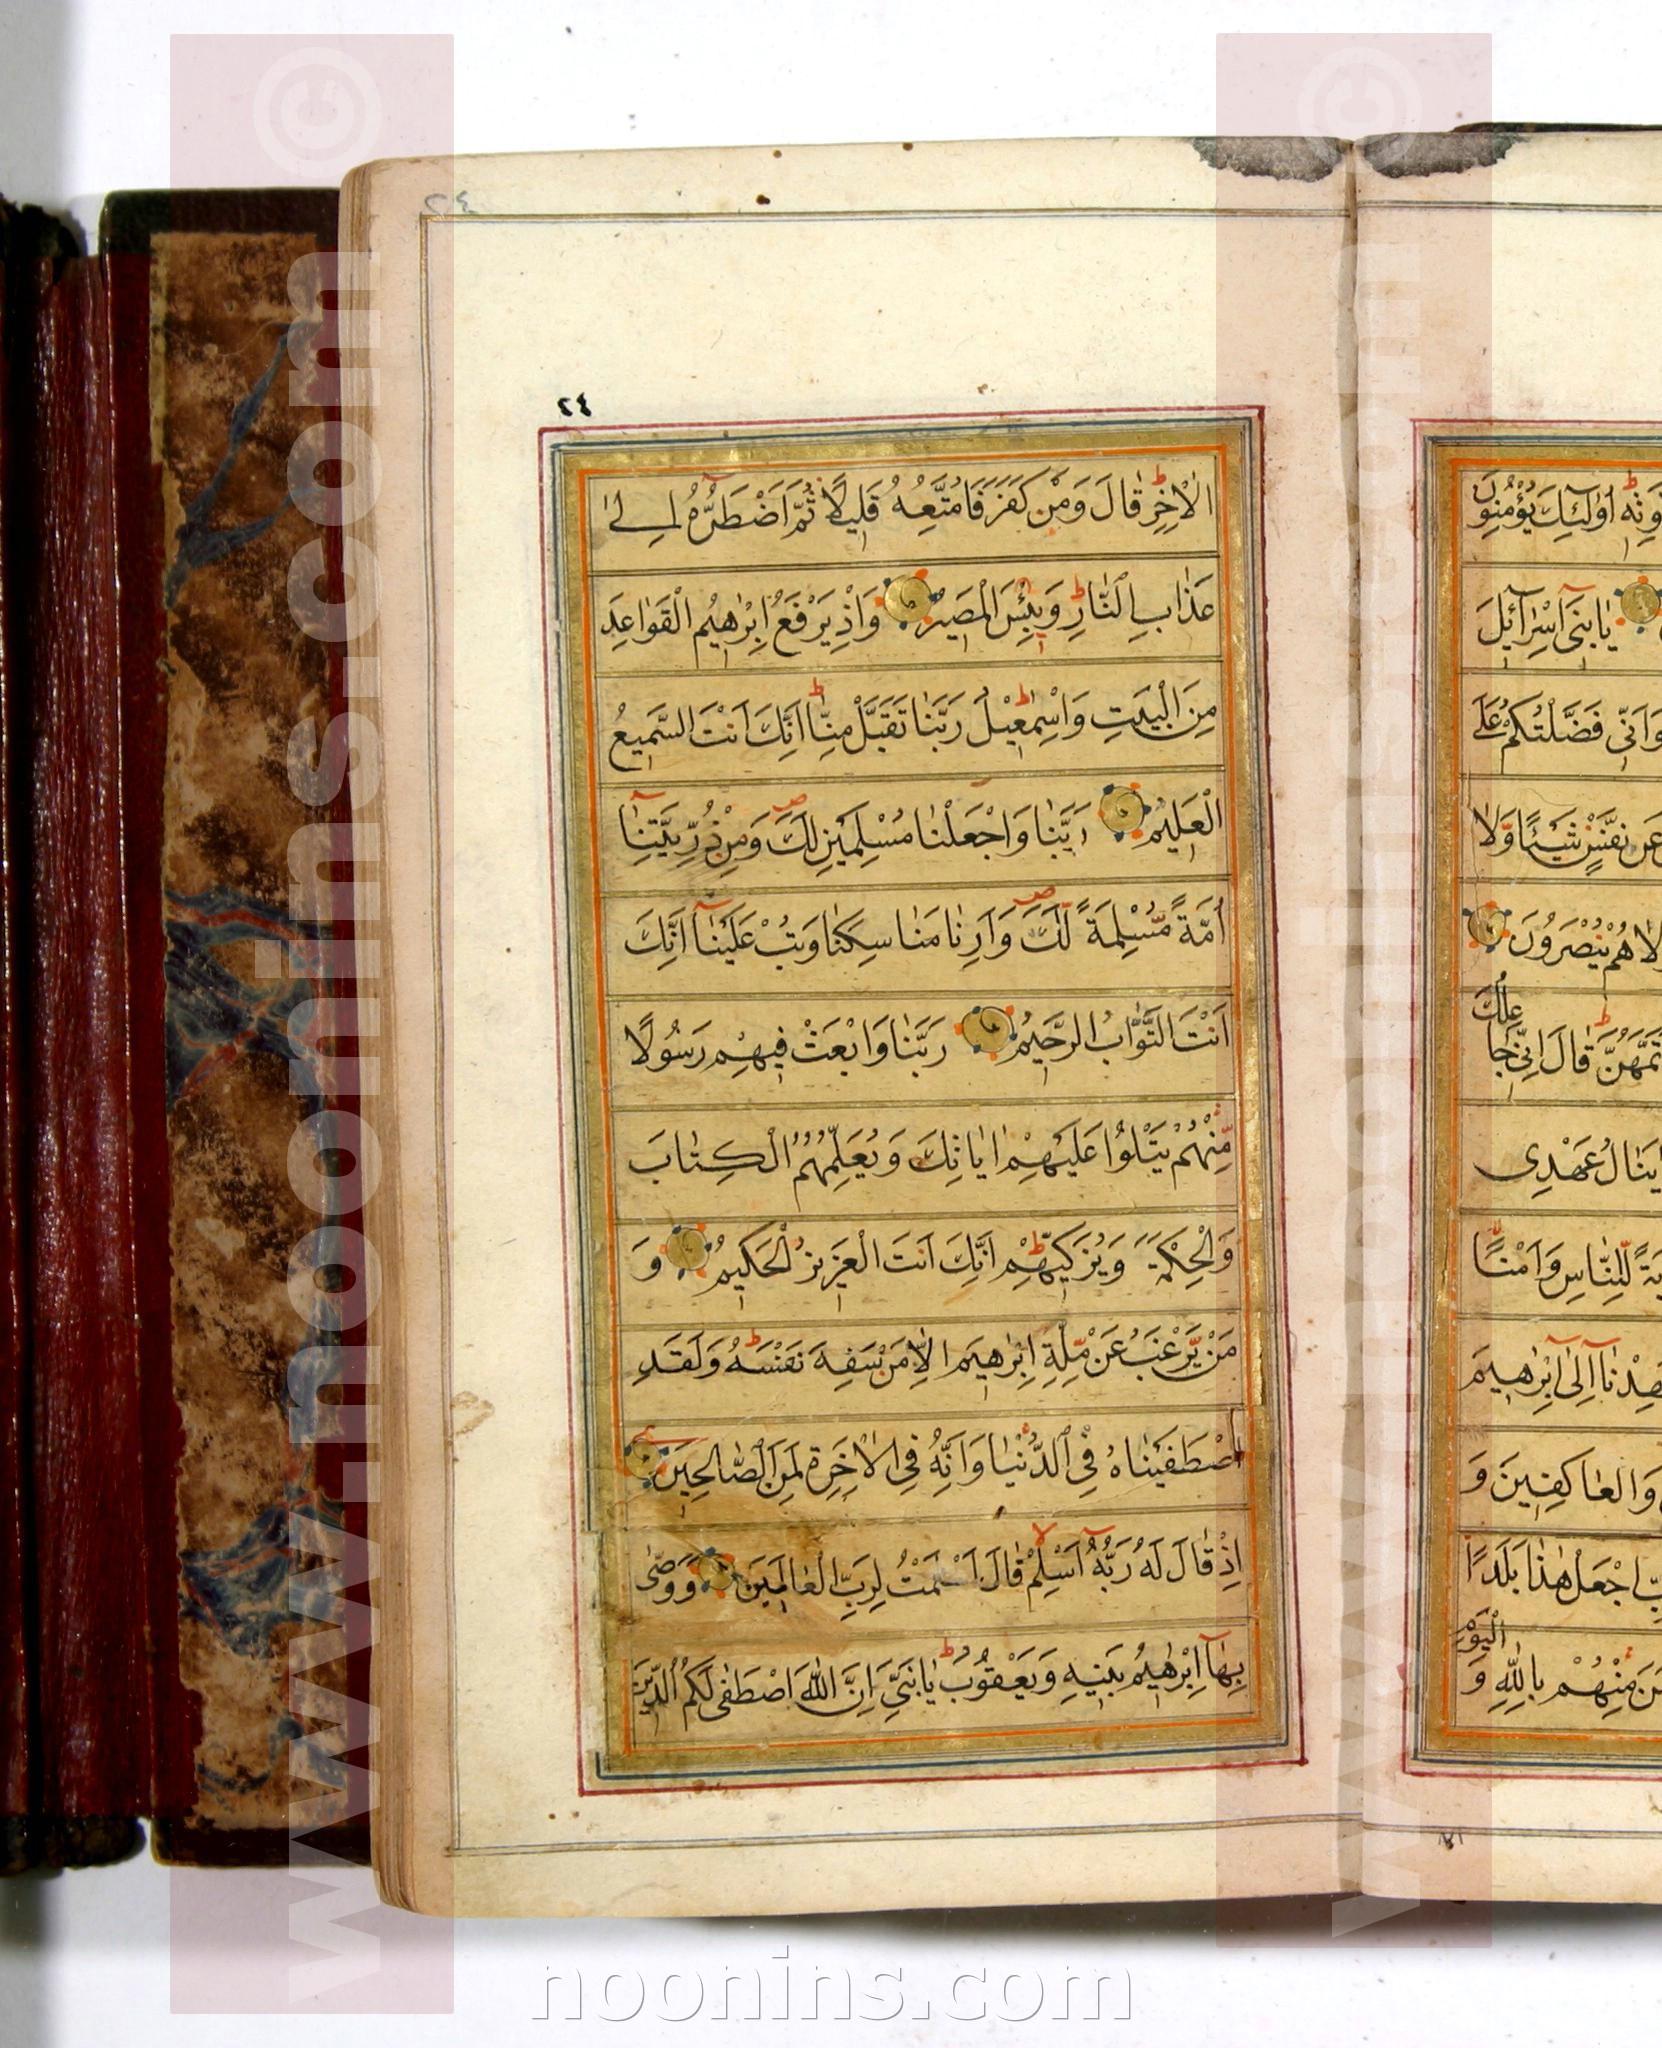 ٢٤
٢٤
الْاٰخِرِ قَالَ وَمَنْ كَفَرَ فَاُمَتِّعُهُ قَلِيلًا ثُمَّ اَضْطَرُّهُ اِلٰى
عَذَابِ النَّارِ وَبِئْسَ الْمَصِيرُ وَاِذْ يَرْفَعُ اِبْرٰهِيمُ الْقَوَاعِدَ
مِنَ الْبَيْتِ وَاِسْمٰعِيْلُ رَبَّنَا تَقَبَّلْ مِنَّا اِنَّكَ اَنْتَ السَّمِيعُ
الْعَلِيمُ رَبَّنَا وَاجْعَلْنَا مُسْلِمَيْنِ لَكَ وَمِنْ ذُرِّيَّتِنَا
اُمَّةً مُّسْلِمَةً لَّكَ وَاَرِنَا مَنَاسِكَنَا وَتُبْ عَلَيْنَا اِنَّكَ
اَنْتَ التَّوَّابُ الرَّحِيمُ رَبَّنَا وَابْعَثْ فِيهِمْ رَسُولًا
مِّنْهُمْ يَتْلُوا عَلَيْهِمْ اٰيَاتِكَ وَيُعَلِّمُهُمُ الْكِتَابَ
وَالْحِكْمَةَ وَيُزَكِّيهِمْ اِنَّكَ اَنْتَ الْعَزِيزُ الْحَكِيمُ وَ
مَنْ يَّرْغَبُ عَنْ مِّلَّةِ اِبْرٰهِيمَ اِلَّا مَنْ سَفِهَ نَفْسَهُ وَلَقَدِ
اصْطَفَيْنَاهُ فِي الدُّنْيَا وَاِنَّهُ فِي الْاٰخِرَةِ لَمِنَ الصَّالِحِينَ
اِذْ قَالَ لَهُ رَبُّهُ اَسْلِمْ قَالَ اَسْلَمْتُ لِرَبِّ الْعَالَمِينَ وَوَصّٰى
بِهَا اِبْرٰهِيمُ بَنِيهِ وَيَعْقُوبُ يَابَنِيَّ اِنَّ اللّٰهَ اصْطَفٰى لَكُمُ الدِّينَ
اُولٰئِكَ يُؤْمِنُونَ
يَابَنِي اِسْرَائِيلَ
وَاَنِّي فَضَّلْتُكُمْ عَلَى
عَنْ نَفْسٍ شَيْئًا وَلَا
وَلَا هُمْ يُنْصَرُونَ
قَالَ اِنِّي جَاعِلُكَ
يَنَالُ عَهْدِي
لِّلنَّاسِ وَاَمْنًا
اِلٰى اِبْرٰهِيمَ
وَالْعَاكِفِينَ وَ
اجْعَلْ هٰذَا بَلَدًا
مِنْهُمْ بِاللّٰهِ وَ الْيَوْمِ
www.noonins.com ©
noonins.com